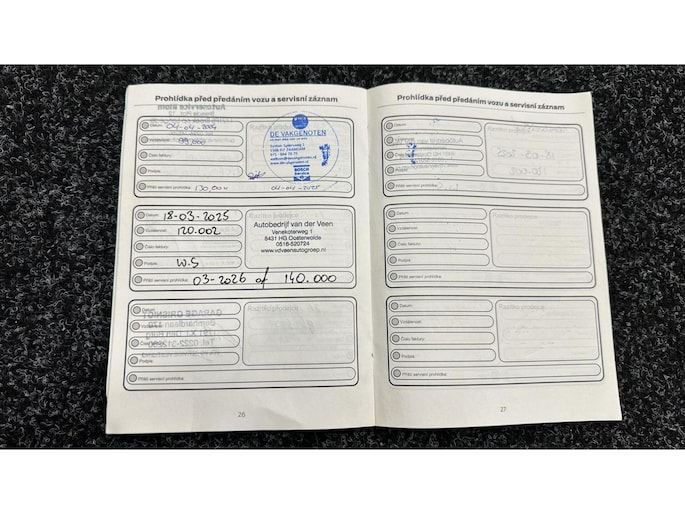 Prohlídka před předáním vozu a servisní záznam
Datum: 04-04-2024
Vzdálenost: 99.000
Číslo faktury:
Podpis:
Příští servisní prohlídka: 130.000 04-04-2025
Razítko prodejce
DE VAKGENOTEN
BOSCH
Service
Datum: 18-03-2025
Vzdálenost: 120.002
Číslo faktury:
Podpis: W.S
Příští servisní prohlídka: 03-2026 of 140.000
Razítko prodejce
Autobedrijf van der Veen
Venekoterweg 1
8431 HG Oosterwolde
0516-520724
www.vdveenautogroep.nl
Datum:
Vzdálenost:
Číslo faktury:
Podpis:
Příští servisní prohlídka:
Razítko prodejce
26
Prohlídka před předáním vozu a servisní záznam
Datum:
Vzdálenost:
Číslo faktury:
Podpis:
Příští servisní prohlídka:
Razítko prodejce
Datum:
Vzdálenost:
Číslo faktury:
Podpis:
Příští servisní prohlídka:
Razítko prodejce
Datum:
Vzdálenost:
Číslo faktury:
Podpis:
Příští servisní prohlídka:
Razítko prodejce
27